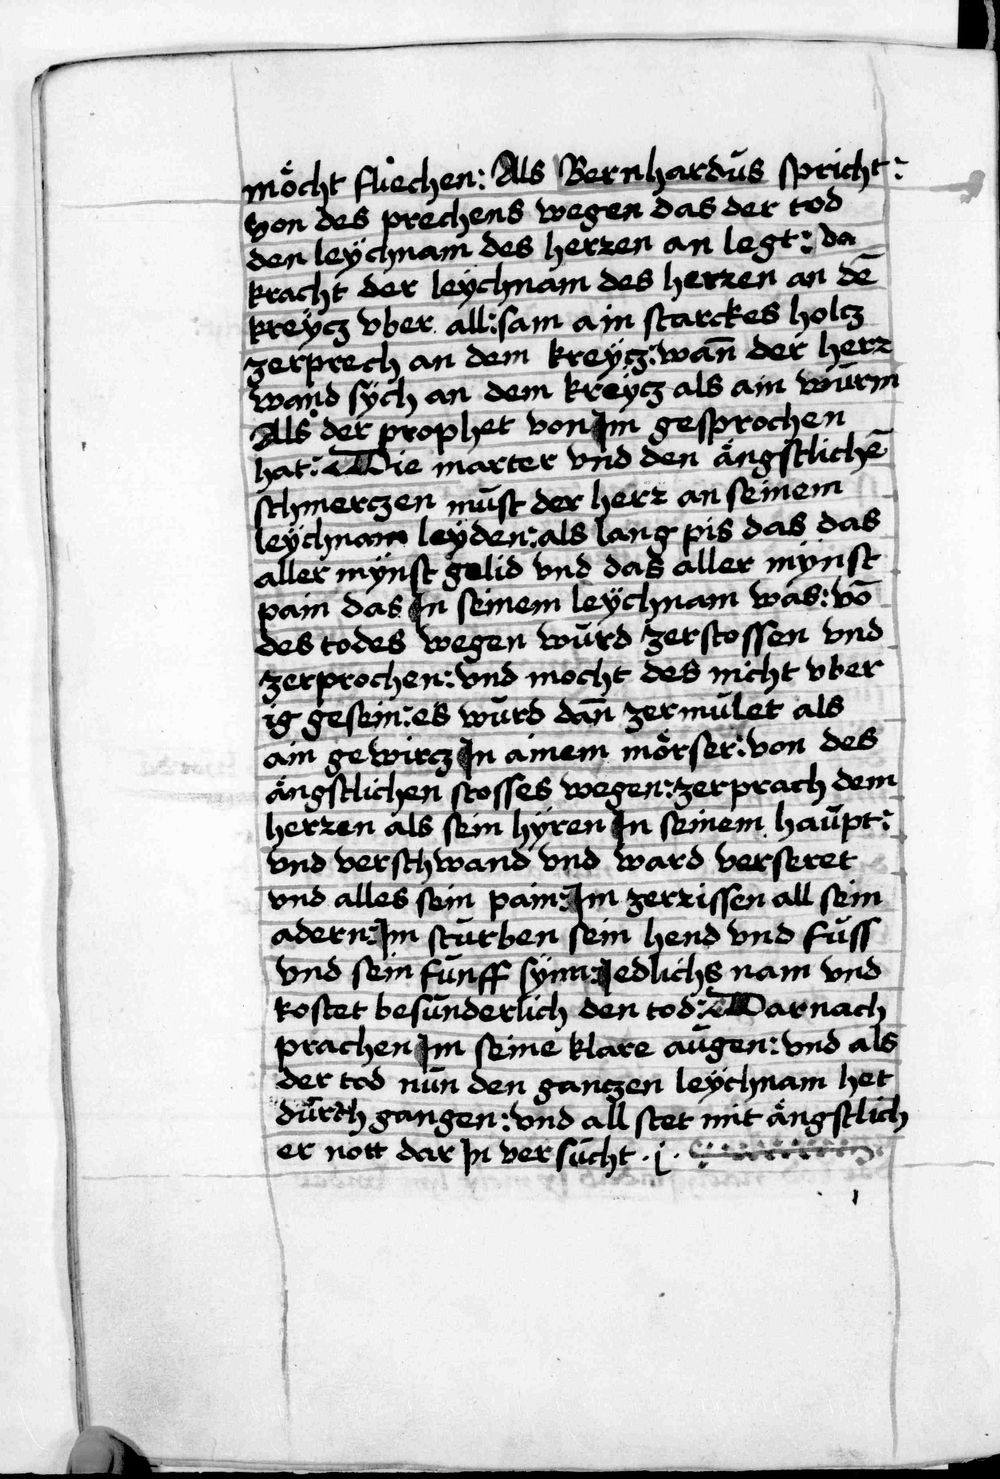 möcht fliechen: Als Bernhardus spricht:
von des prechens wegen das der tod
den leÿchnam des herzen an legt: da
kracht der leÿchnam des herzen an dē
kreÿcz vber all: sam ain starckes holcz
zerprech an dem kreÿcz: wan̄ der herz
wand sÿch an dem kreÿcz als ain wūrm
Als der prophet von Im gesprochen
hat: Die marter vnd den ängstlichē
schmerczen mūst der herz an seinem
leÿchnam leÿden: als lang pis das das
aller mÿnst gelid vnd das aller mÿnst
pain das In seinem leÿchnam was: vō
des todes wegen wūrd zerstossen vnd
zerprochen: vnd mocht des nicht vber
ig gesein: es wūrd dan̄ zermūlet als
ain gewircz In ainem mörser: von des
ängstlichen stosses wegen: zerprach dem
herzen als sein hÿren In seinem haūpt:
vnd verschwand vnd ward verseret
vnd alles sein pain: Im zerrissen all sein
adern: Im stūrben sein hend vnd fūss
vnd sein fūnff sÿnn: Iedlichs nam vnd
kostet besūnderlich den tod: Darnach
prachen Im seine klare aūgen: vnd als
der tod nūn den ganczen leÿchnam het
dūrch gangen: vnd all stet mit ängstlich
er nott dar In versūcht . j .